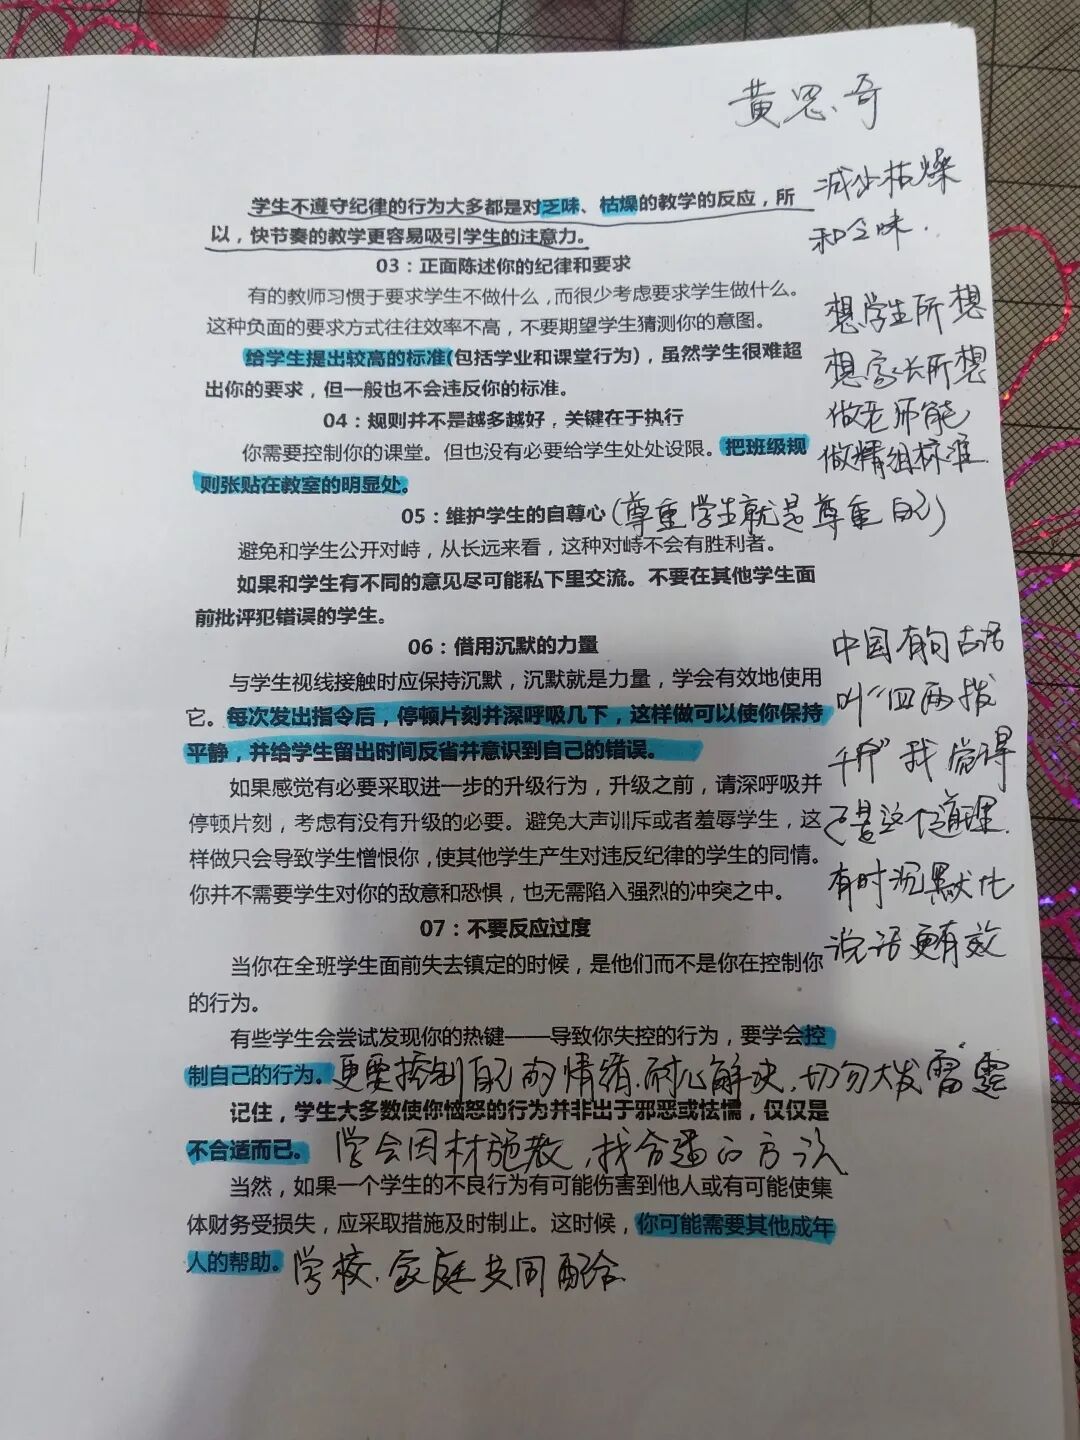 黄思奇
学生不遵守纪律的行为大多都是对乏味、枯燥的教学的反应，所
以，快节奏的教学更容易吸引学生的注意力。
减少枯燥
和乏味.
03：正面陈述你的纪律和要求
有的教师习惯于要求学生不做什么，而很少考虑要求学生做什么。
这种负面的要求方式往往效率不高，不要期望学生猜测你的意图。
给学生提出较高的标准(包括学业和课堂行为)，虽然学生很难超
出你的要求，但一般也不会违反你的标准。
想学生所想
想家长所想
做老师能
做精组标准
04：规则并不是越多越好，关键在于执行
你需要控制你的课堂。但也没有必要给学生处处设限。把班级规
则张贴在教室的明显处。
05：维护学生的自尊心(尊重学生就是尊重自己)
避免和学生公开对峙，从长远来看，这种对峙不会有胜利者。
如果和学生有不同的意见尽可能私下里交流。不要在其他学生面
前批评犯错误的学生。
06：借用沉默的力量
与学生视线接触时应保持沉默，沉默就是力量，学会有效地使用
它。每次发出指令后，停顿片刻并深呼吸几下，这样做可以使你保持
平静，并给学生留出时间反省并意识到自己的错误。
如果感觉有必要采取进一步的升级行为，升级之前，请深呼吸并
停顿片刻，考虑有没有升级的必要。避免大声训斥或者羞辱学生，这
样做只会导致学生憎恨你，使其他学生产生对违反纪律的学生的同情。
你并不需要学生对你的敌意和恐惧，也无需陷入强烈的冲突之中。
中国有句古话
叫“四两拨
千斤”我觉得
是这个道理.
有时沉默比
说话更有效
07：不要反应过度
当你在全班学生面前失去镇定的时候，是他们而不是你在控制你
的行为。
有些学生会尝试发现你的热键——导致你失控的行为，要学会控
制自己的行为。更要控制自己的情绪.耐心解决.切勿大发雷霆
记住，学生大多数使你恼怒的行为并非出于邪恶或怯懦，仅仅是
不合适而已。学会因材施教,找合适的方法
当然，如果一个学生的不良行为有可能伤害到他人或有可能使集
体财务受损失，应采取措施及时制止。这时候，你可能需要其他成年
人的帮助。学校.家庭共同配合.